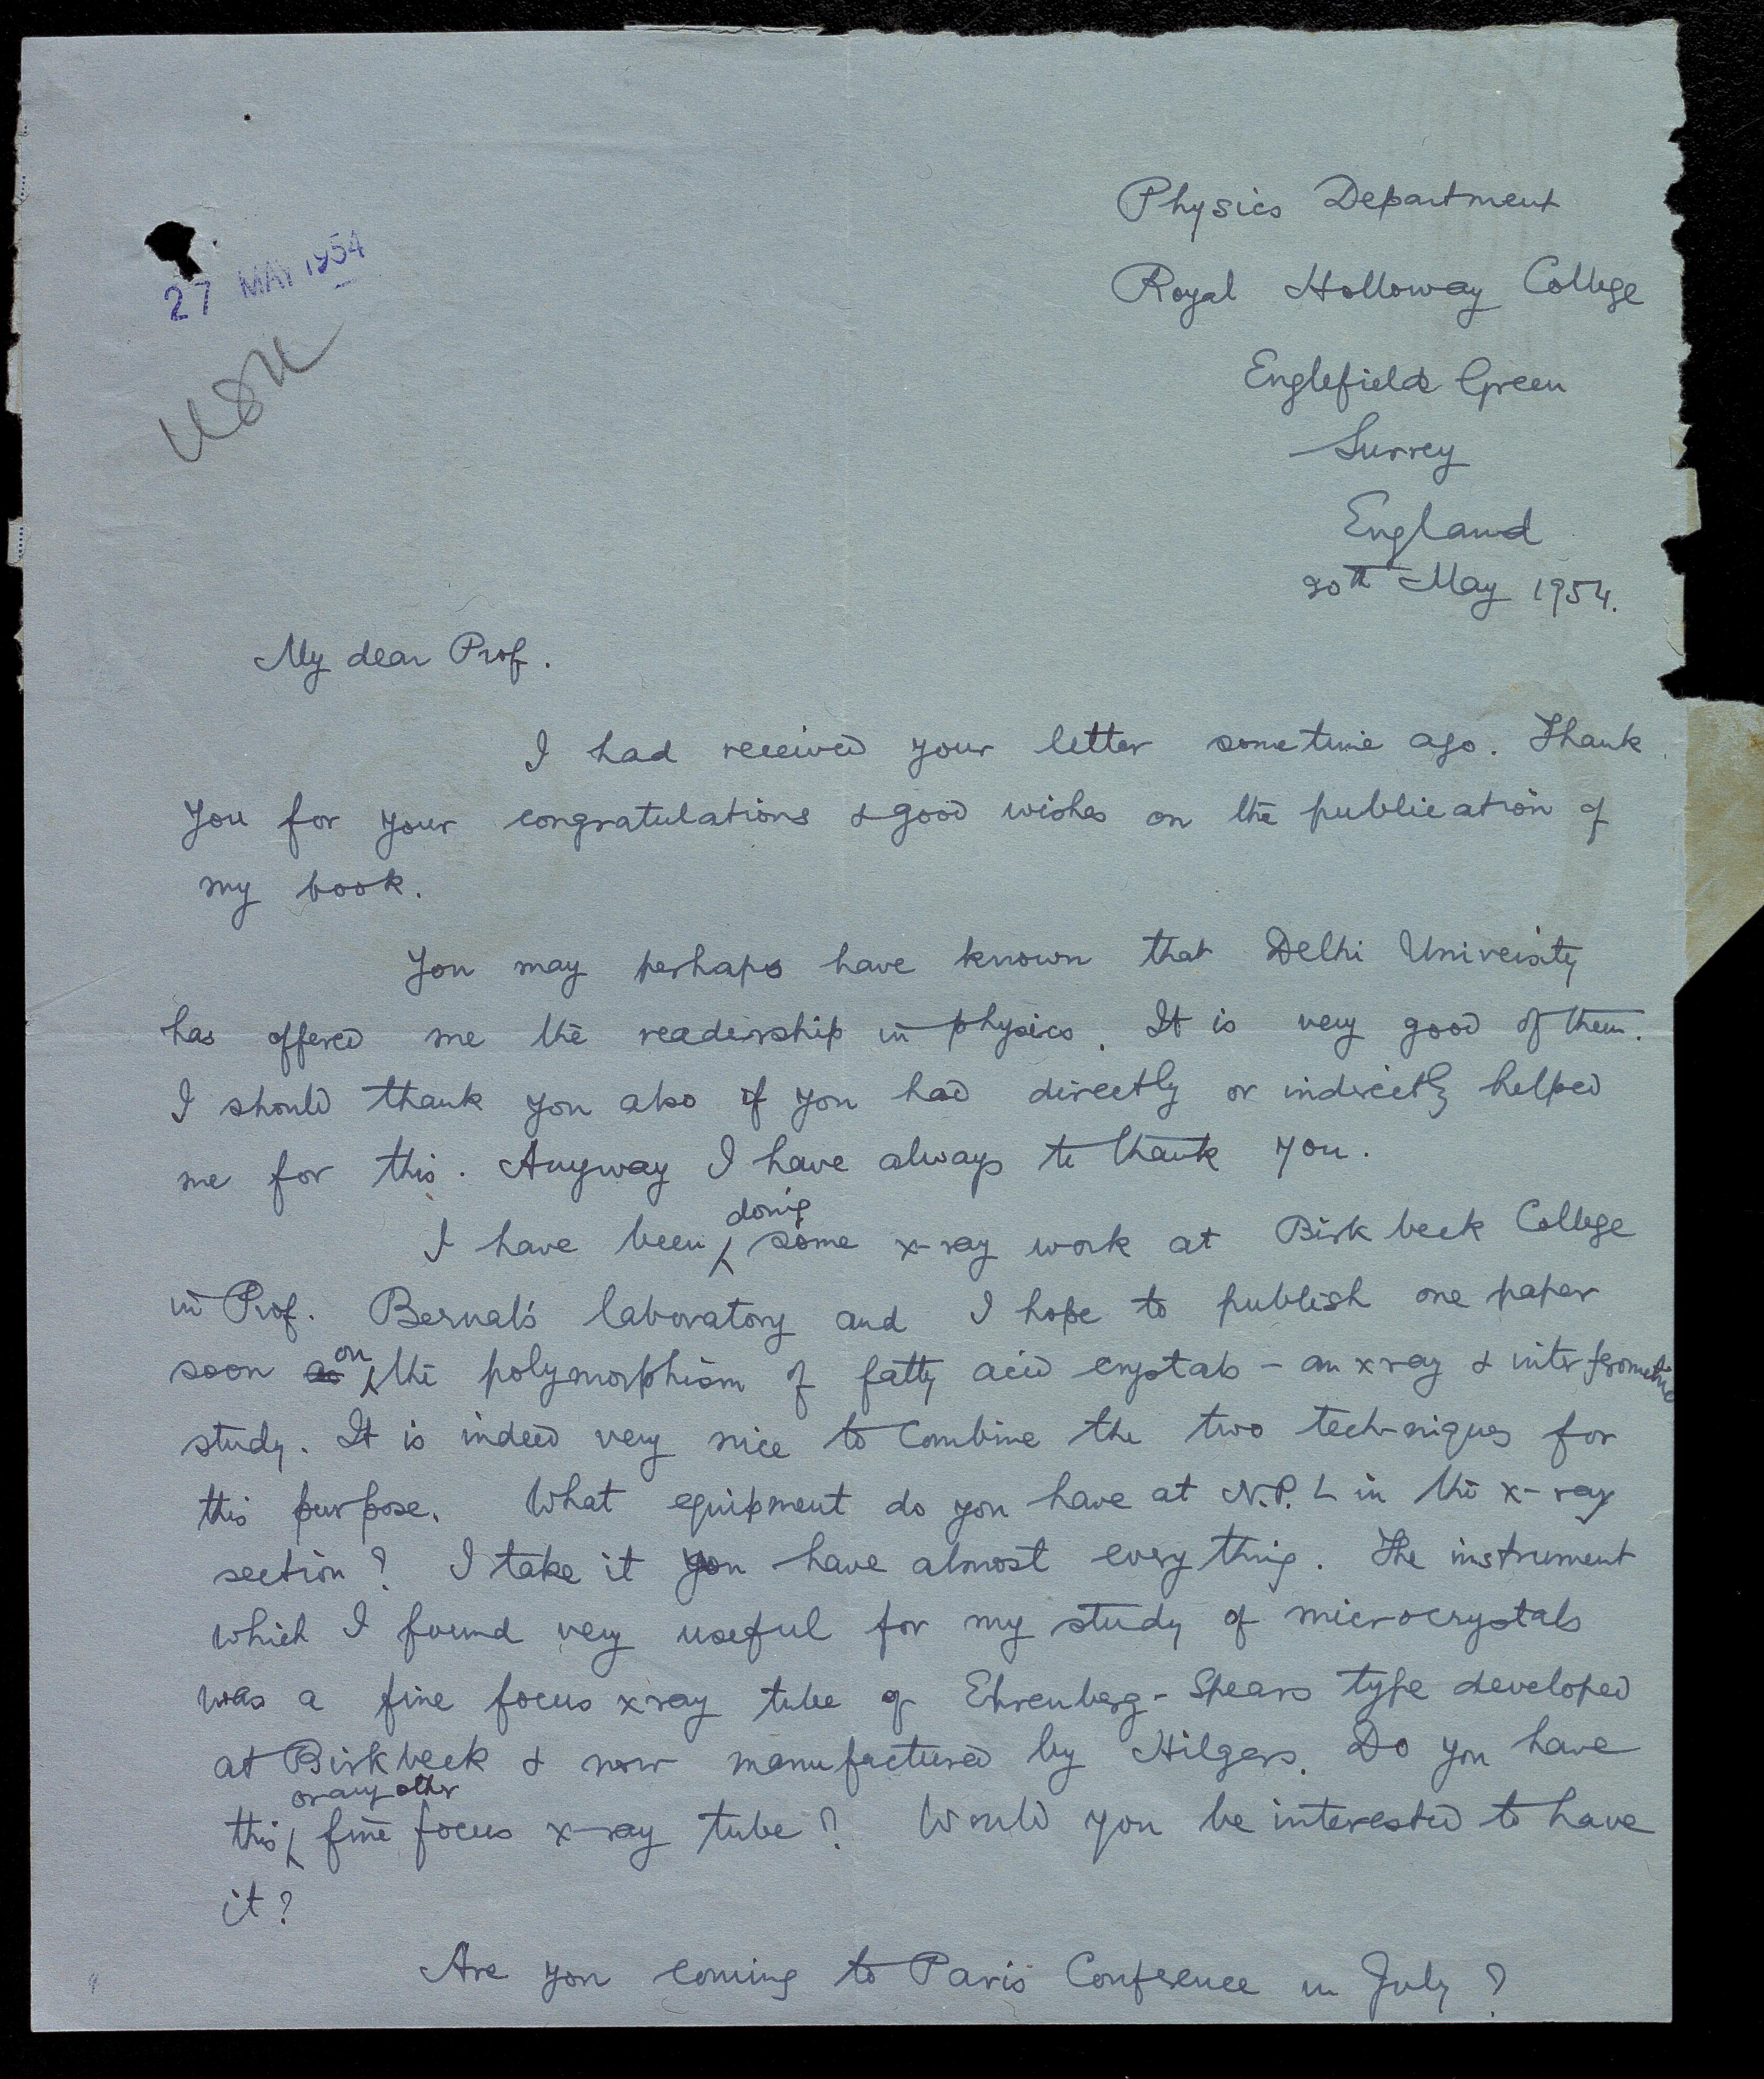 Physics Department
Royal Holloway College
Englefield Green
Surrey
England
20th May 1954.
27 MAY 1954
My dear Prof.
I had received your letter sometime ago. Thank
you for your congratulations & good wishes on the publication of
my book.
You may perhaps have known that Delhi University
has offered me the readership in physics. It is very good of them.
I should thank you also if you had directly or indirectly helped
me for this. Anyway I have always to thank you.
I have been doing some x-ray work at Birkbeck College
in Prof. Bernal's laboratory and I hope to publish one paper
soon on the polymorphism of fatty acid crystals - an xray & interferometric
study. It is indeed very nice to combine the two tech-niques for
this purpose. What equipment do you have at N.P.L in the x-ray
section? I take it you have almost every thing. The instrument
which I found very useful for my study of microcrystals
was a fine focus xray tube of Ehrenberg-Spears type developed
at Birkbeck & now manufactured by Hilgers. Do you have
this or any other fine focus x-ray tube? Would you be interested to have
it?
Are you coming to Paris Conference in July?